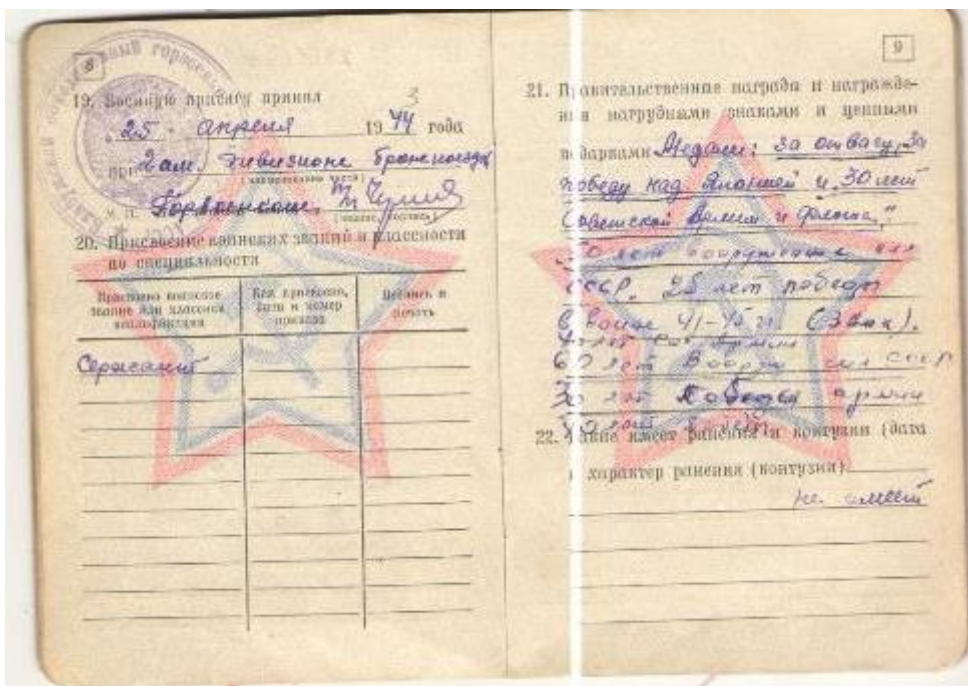 8
19. Военную присягу принял
3
„25“ апреля 1944 года
при 2 ам. дивизионе бронепоездов
(наименование части)
М. П. Горвоенком
20. Присвоение воинских званий и классности
по специальности
Присвоено воинское
звание или классная
квалификация
Кем присвоено,
дата и номер
приказа
Подпись и
печать
Сержант
9
21. Правительственные награды и награжде-
ния нагрудными знаками и ценными
подарками Медали: За отвагу, За
победу над Японией и 30 лет
Советской Армии и флота,"
50 лет вооруженных сил
СССР. 25 лет победы
в войне 41-45 г. (Знак).
60 лет Вооруж сил СССР
30 лет
22. Какие имеет ранения и контузии (дата
и характер ранения (контузии)
не имеет